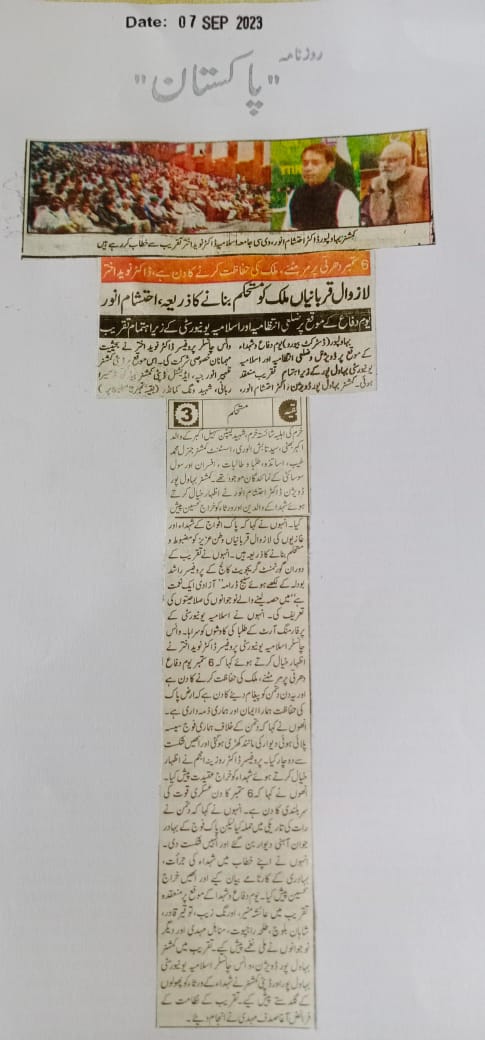 Date: 07 SEP 2023
روزنامہ
"پاکستان"
کمشنر بہاولپور ڈاکٹر احتشام انور، وی سی جامعہ اسلامیہ ڈاکٹر نوید اختر تقریب سے خطاب کر رہے ہیں
6 ستمبر دھرتی پر مر مٹنے، ملک کی حفاظت کرنے کا دن ہے، ڈاکٹر نوید اختر
لازوال قربانیاں ملک کو مستحکم بنانے کا ذریعہ، احتشام انور
یوم دفاع کے موقع پر ضلعی انتظامیہ اور اسلامیہ یونیورسٹی کے زیر اہتمام تقریب
بہاولپور (ڈسٹرکٹ بیورو) یوم دفاع و شہداء
کے موقع پر ڈویژنل و ضلعی انتظامیہ اور اسلامیہ
یونیورسٹی بہاول پور کے زیر اہتمام تقریب منعقد
ہوئی۔ کمشنر بہاول پور ڈویژن ڈاکٹر احتشام انور،
وائس چانسلر پروفیسر ڈاکٹر نوید اختر نے بحیثیت
مہمانان خصوصی شرکت کی۔ اس موقع پر ڈپٹی کمشنر
ظہیر انور جپہ، ایڈیشنل ڈپٹی کمشنر
ربانی، شہید ونگ کمانڈر
بقیہ
مستحکم
3
خرم کی اہلیہ شائستہ خرم، شہید کیپٹن سہیل اکبر کے والد
اکبر بھٹی، سید تابش الوری، اسسٹنٹ کمشنر جنرل محمد
طیب، اساتذہ، طلبا و طالبات، افسران اور سول
سوسائٹی کے نمائندگان موجود تھے۔ کمشنر بہاول پور
ڈویژن ڈاکٹر احتشام انور نے اظہار خیال کرتے
ہوئے شہدا کے والدین اور ورثاء کو خراج تحسین پیش
کیا۔ انہوں نے کہا کہ پاک افواج کے شہداء اور
غازیوں کی لازوال قربانیاں وطن عزیز کو مضبوط و
مستحکم بنانے کا ذریعہ ہیں۔ انہوں نے تقریب کے
دوران گورنمنٹ گریجویٹ کالج کے پروفیسر راشد
بودلہ کے لکھے ہوئے سٹیج ڈرامہ "آزادی ایک نعمت
ہے" میں حصہ لینے والے نوجوانوں کی صلاحیتوں کی
تعریف کی۔ انہوں نے اسلامیہ یونیورسٹی کے
پرفارمنگ آرٹ کے طلبا کی کاوشوں کو سراہا۔ وائس
چانسلر اسلامیہ یونیورسٹی پروفیسر ڈاکٹر نوید اختر نے
اظہار خیال کرتے ہوئے کہا کہ 6 ستمبر یوم دفاع
دھرتی پر مر مٹنے، ملک کی حفاظت کرنے کا دن ہے
اور یہ دن دشمن کو پیغام دینے کا دن ہے کہ ارض پاک
کی حفاظت ہمارا ایمان اور ہماری ذمہ داری ہے۔
انھوں نے کہا کہ دشمن کے خلاف ہماری فوج سیسہ
پلائی ہوئی دیوار کی مانند کھڑی ہو گئی اور انھیں شکست
سے دوچار کیا۔ پروفیسر ڈاکٹر روزینہ انجم نے اظہار
خیال کرتے ہوئے شہداء کو خراج عقیدت پیش کیا۔
انھوں نے کہا کہ 6 ستمبر کا دن عسکری قوت کی
سربلندی کا دن ہے۔ انہوں نے کہا کہ دشمن نے
رات کی تاریکی میں حملہ کیا لیکن پاک فوج کے بہادر
جوان آہنی دیوار بن گئے اور انہیں شکست دی۔
انہوں نے اپنے خطاب میں شہداء کی جرأت،
بہادری کے کارنامے بیان کیے اور انھیں خراج
تحسین پیش کیا۔ یوم دفاع و شہداء کے موقع پر منعقدہ
تقریب میں عائشہ منیر، اورنگ زیب، توقیر قادر،
شاہان بلوچ، طلحہ راجپوت، مناہل مہدی اور دیگر
نوجوانوں نے ملی نغمے پیش کیے۔ تقریب میں کمشنر
بہاول پور ڈویژن، وائس چانسلر اسلامیہ یونیورسٹی
بہاول پور اور ڈپٹی کمشنر نے شہداء کے ورثاء کو پھولوں
کے گلدستے پیش کیے۔ تقریب کے نظامت کے
فرائض آغا صدف مہدی نے انجام دیئے۔